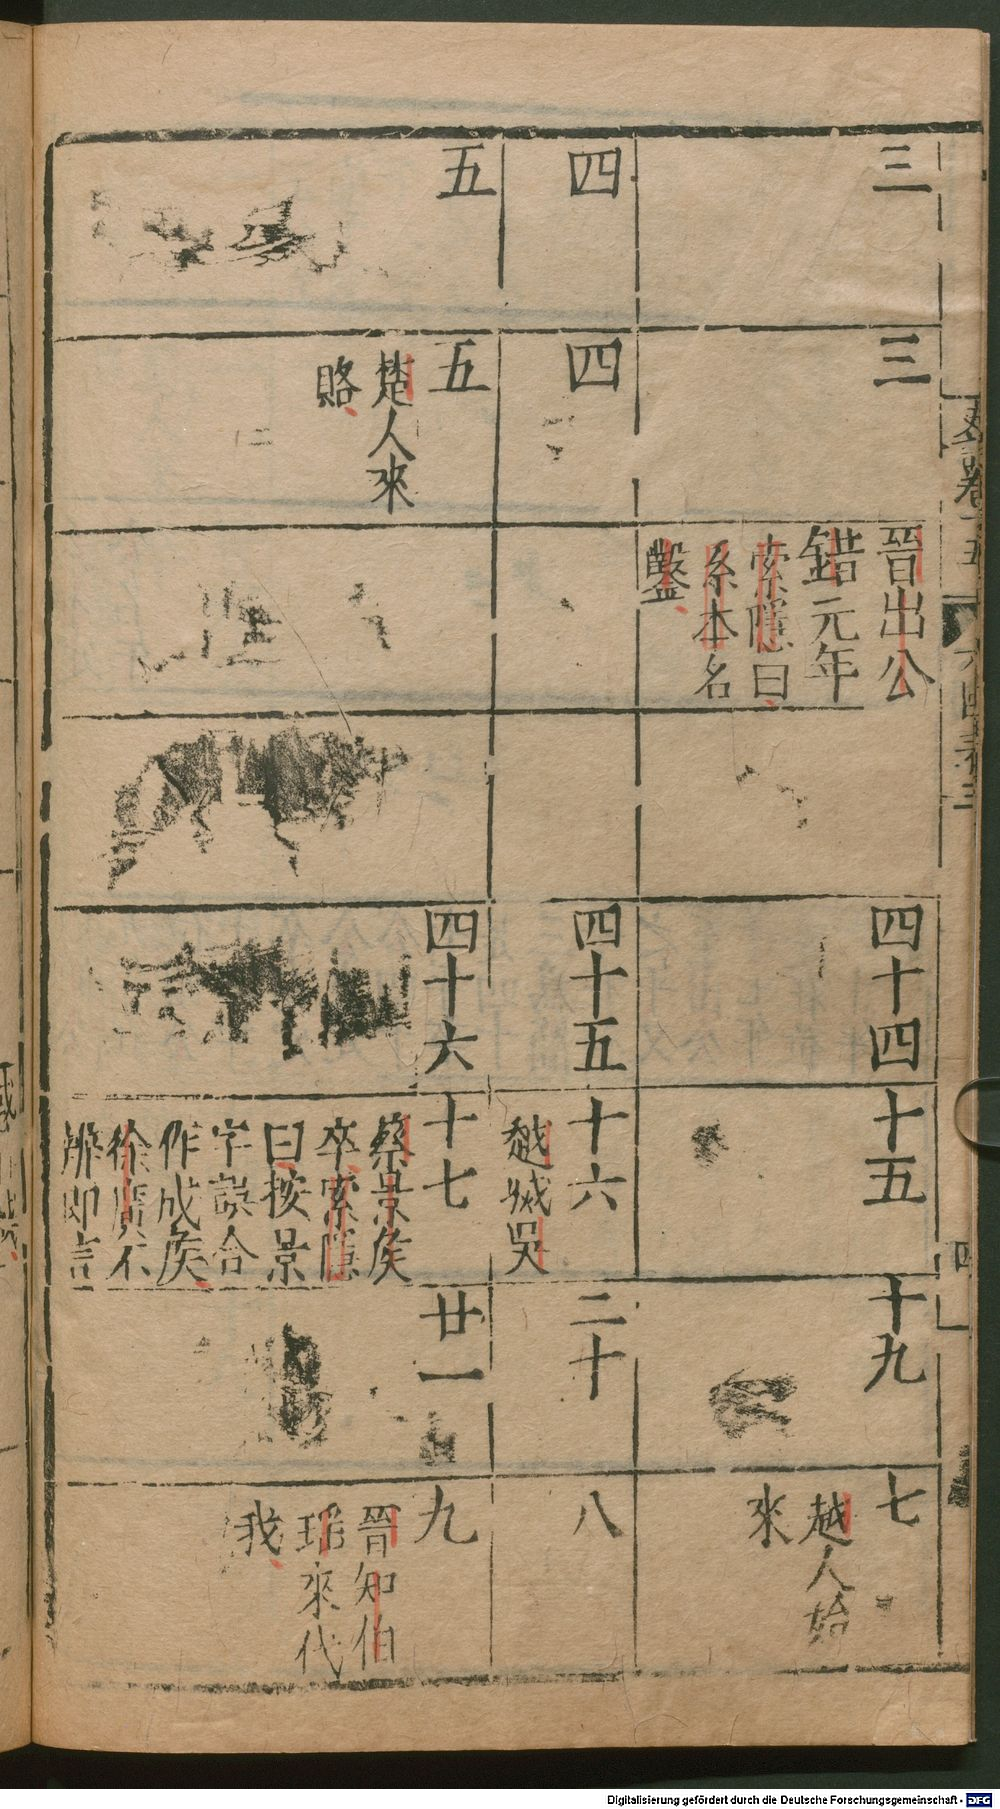 三
三
晉出公
錯元年
索隱曰
系本名
鑿
四十四
十五
十九
七
越人始
來
四
四
四十五
十六
越滅吳
二十
八
五
五
楚人來
賂
四十六
十七
蔡景侯
卒索隱
曰按景
字誤合
作成侯
徐廣不
辨即言
廿一
九
晉知伯
瑶來伐
我
Digitalisierung gefördert durch die Deutsche Forschungsgemeinschaft - DFG